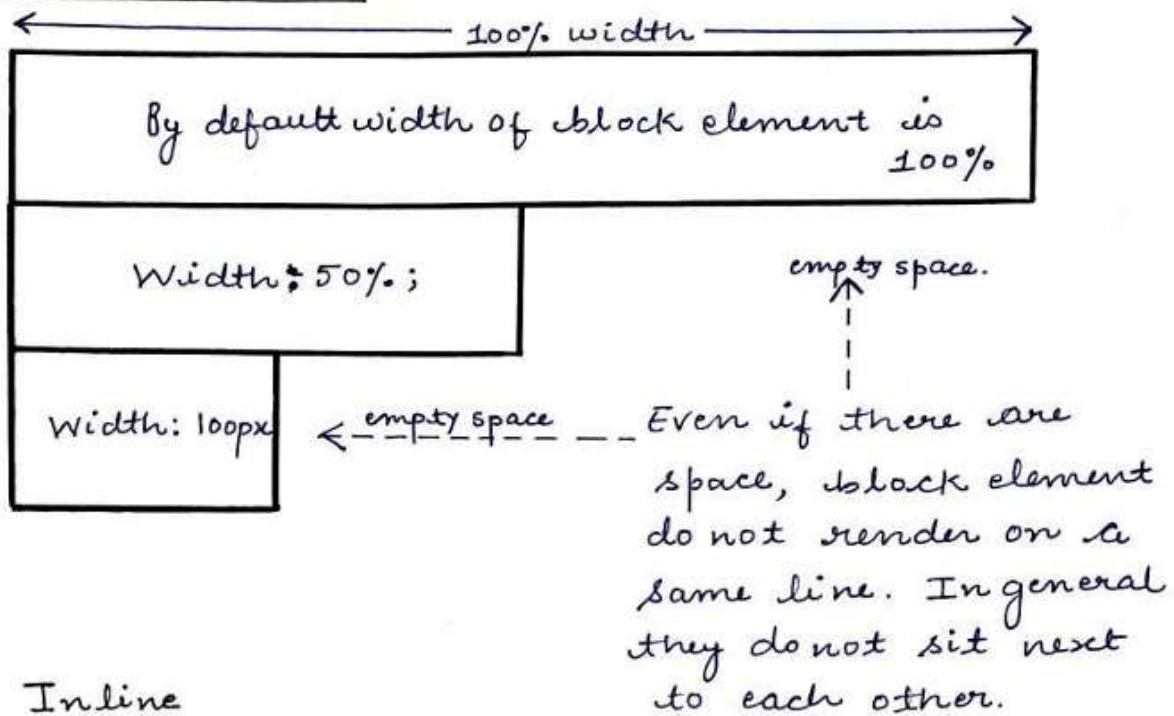 100% width
By default width of block element is
100%
Width: 50%;
empty space.
Width: 100px
empty space
Even if there are
space, block element
do not render on a
same line. In general
they do not sit next
to each other.
Inline